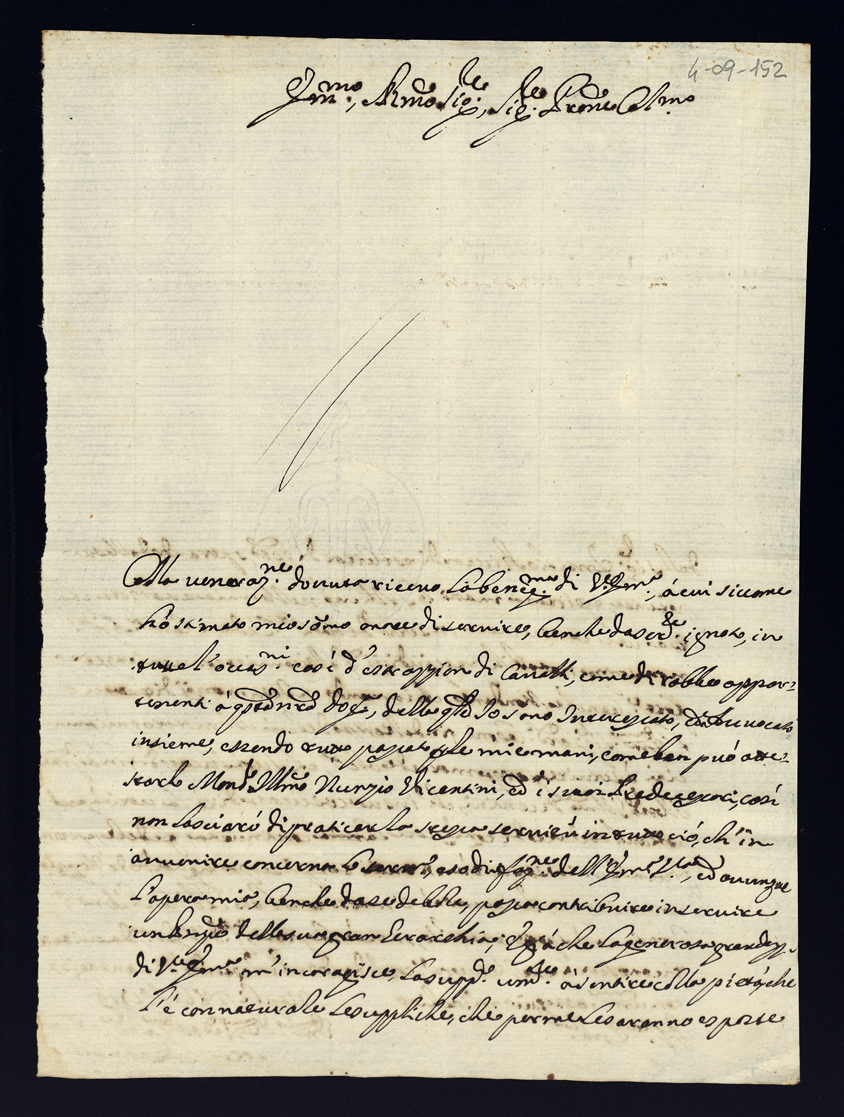 4-09-152
Em:mo, Rmo Sig:re, Sig:re Prone Colmo
Colla veneraz:ne dovuta ricevo la benig:ma di V:a Em:a, à cui siccome
hò stimato mio sômo onore di servire, benche da ignoto, in
tutte l'occas:ni così d' di Cavalli, come di robbe appar-
tenenti à dell'
insieme, essendo tutto passato p le mie mani, come ben può atte-
starlo Mons:r Illmo Nunzio Vicentini, ed i suoi Predecessori, così
non lasciarò di praticar la stessa servitù in tutto ciò, ch'in
avvenire concerna dell' Em:a V:a, ed ovunque
l'opera mia, benche da se debole, possa contribuire in servire
un della sua gran Gerarchia. E già che la generosa grandezz.
di V:a Em:a m'incoragisce, la supp:co um:te a sentire colla pietà, che
l'è connaturale le suppliche, che per me le saranno esposte